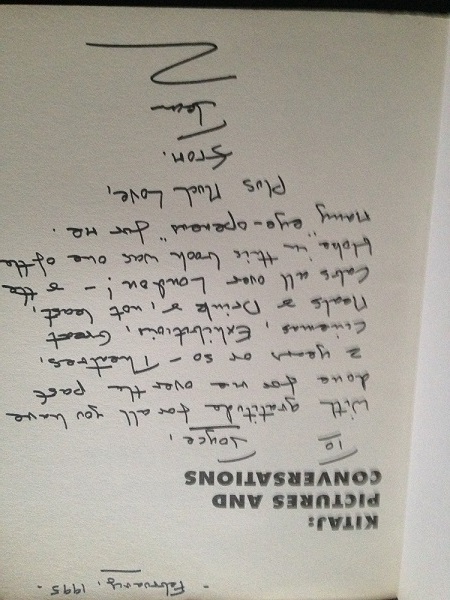 - February, 1995 -
KITAJ:
PICTURES AND
CONVERSATIONS
To Joyce,
With gratitude for all you have
done for me over the past
2 years or so - Theatres,
Cinemas, Exhibitions, Great
Meals & Drink &, not least,
Cabs all over London! - & the
bloke in this book was one of the
many "eye-openers" for me.
Plus Much Love,
from.